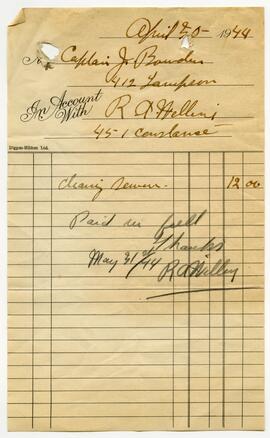 April 20 - 1944
Captain J. Bowden
412 Lampson
In Account With
R A Willing
451 Constance
Diggon-Hibben Ltd.
sewer. 12 00
Paid in full
Thanks
May 31st/44